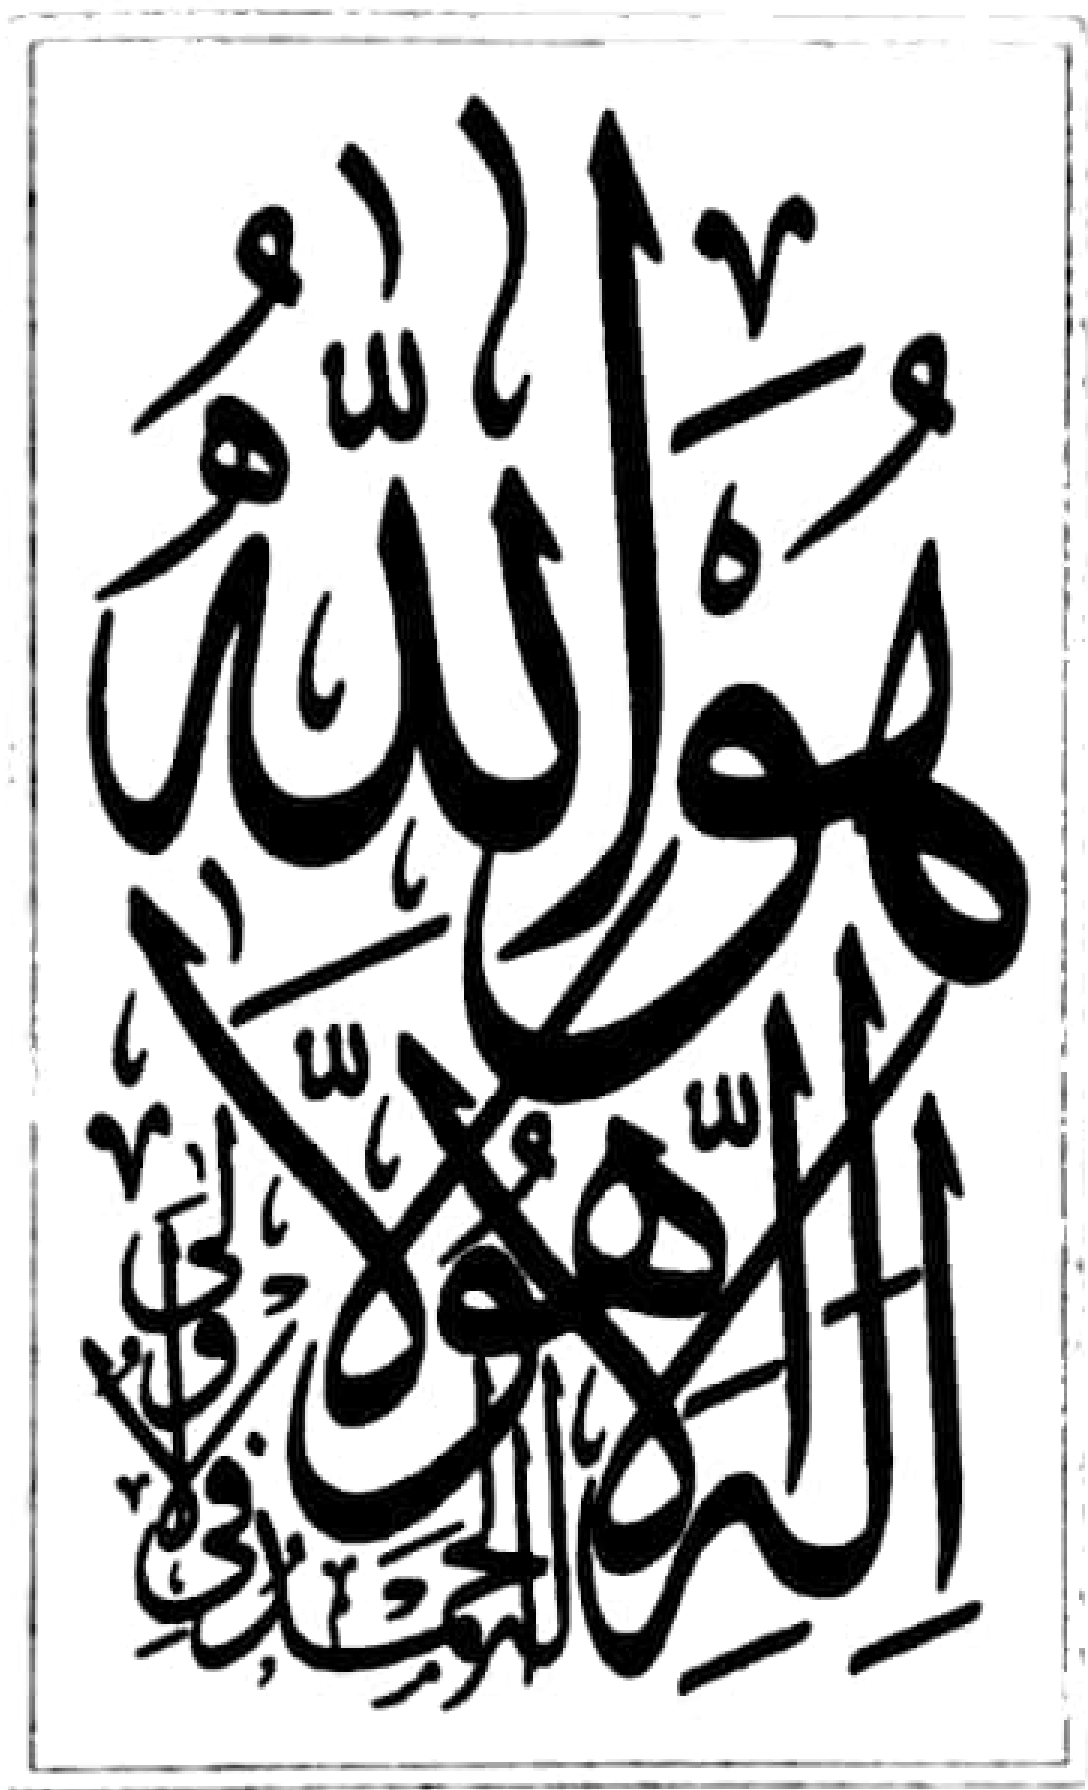 وهو الله
لا إله إلا هو
له الحمد في
الأولى و